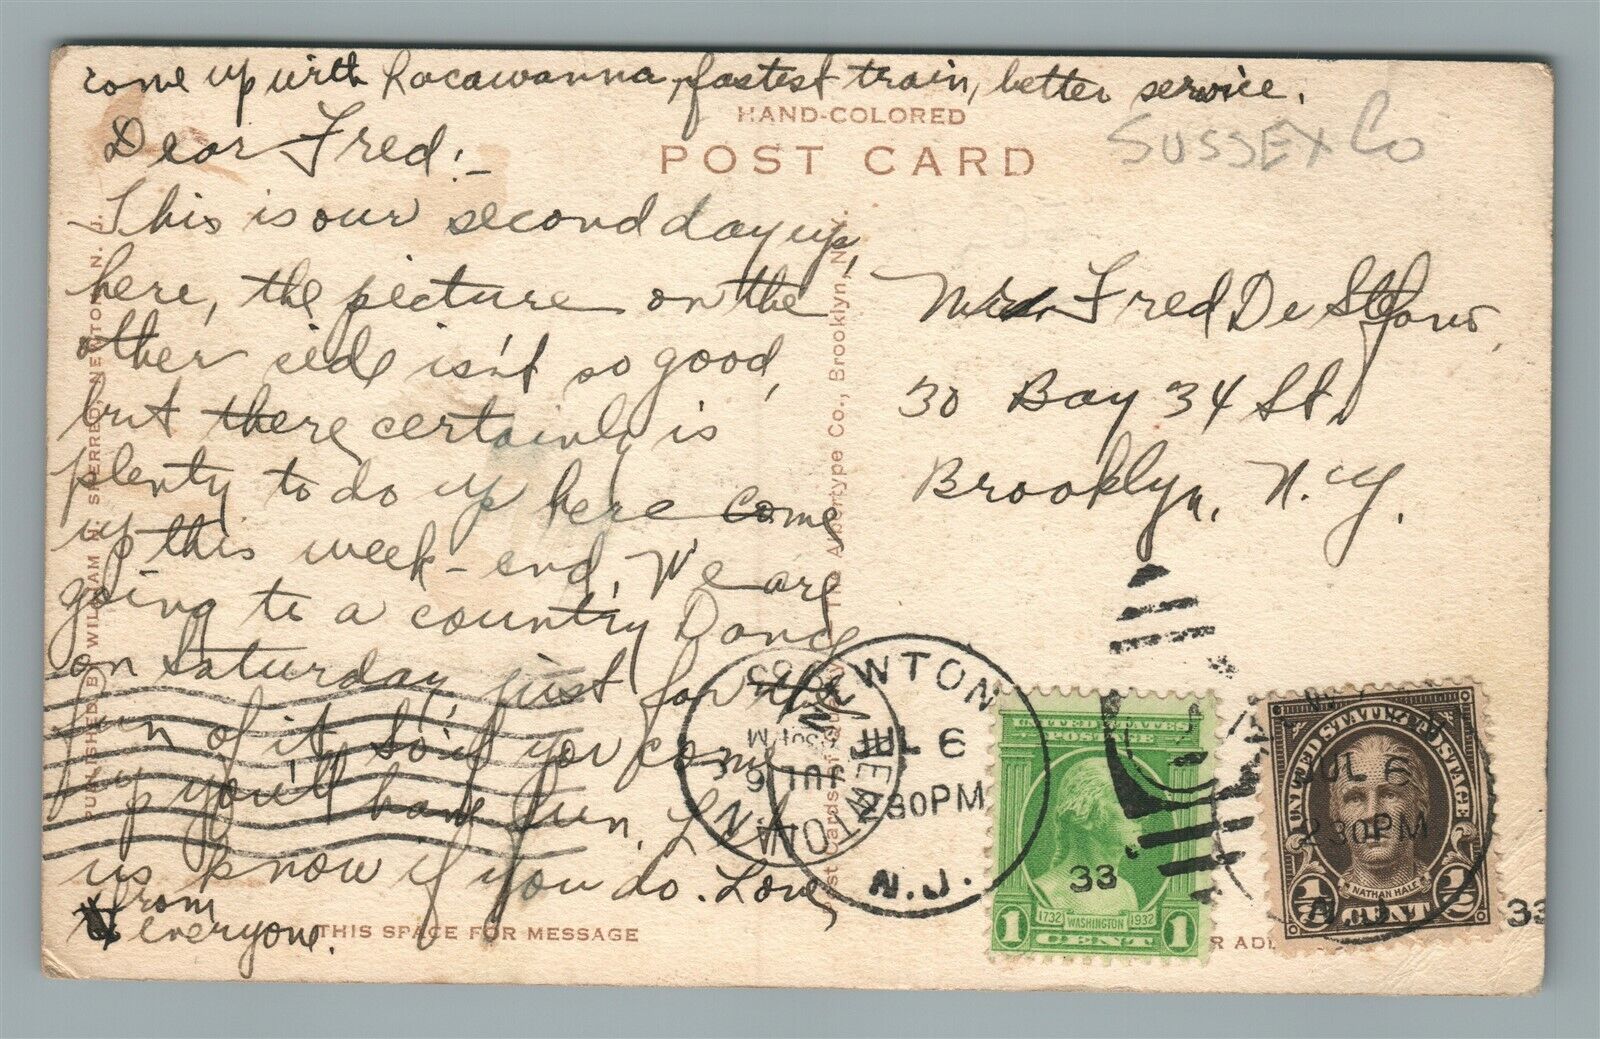 come up with Lacawanna, fastest train, better service.
HAND-COLORED
POST CARD
SUSSEX Co
Dear Fred:-
This is our second day up
here, the picture on the
other side isn't so good,
but there certainly is
plenty to do up here come
up this week-end. We are
going to a country Dance
on Saturday, just for the
fun of it. So if you come
up you'll have fun. Let
us know if you do. Love
from
everyone.
Fred De Stefano,
30 Bay 34 St.
Brooklyn, N.Y.
PUBLISHED BY WILLIAM N. SHERRED, NEWTON, N. J.
Post Cards of Quality. The Albertype Co., Brooklyn, N.Y.
THIS SPACE FOR MESSAGE
NEWTON
JUL 6
230PM
N.J.
NEWTON
JUL 6
N.J.
UNITED STATES
POSTAGE
33
1732 WASHINGTON 1932
1 CENT 1
UNITED STATES POSTAGE
JUL 6
230PM
NATHAN HALE
1/2 CENT 1/2
N.J.
33